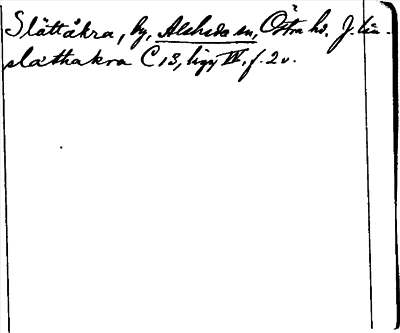 Slättåkra, by, Alsheda sn, Östra hd. J. län.
slatthakra C 13, ligg IV, f. 2 v.